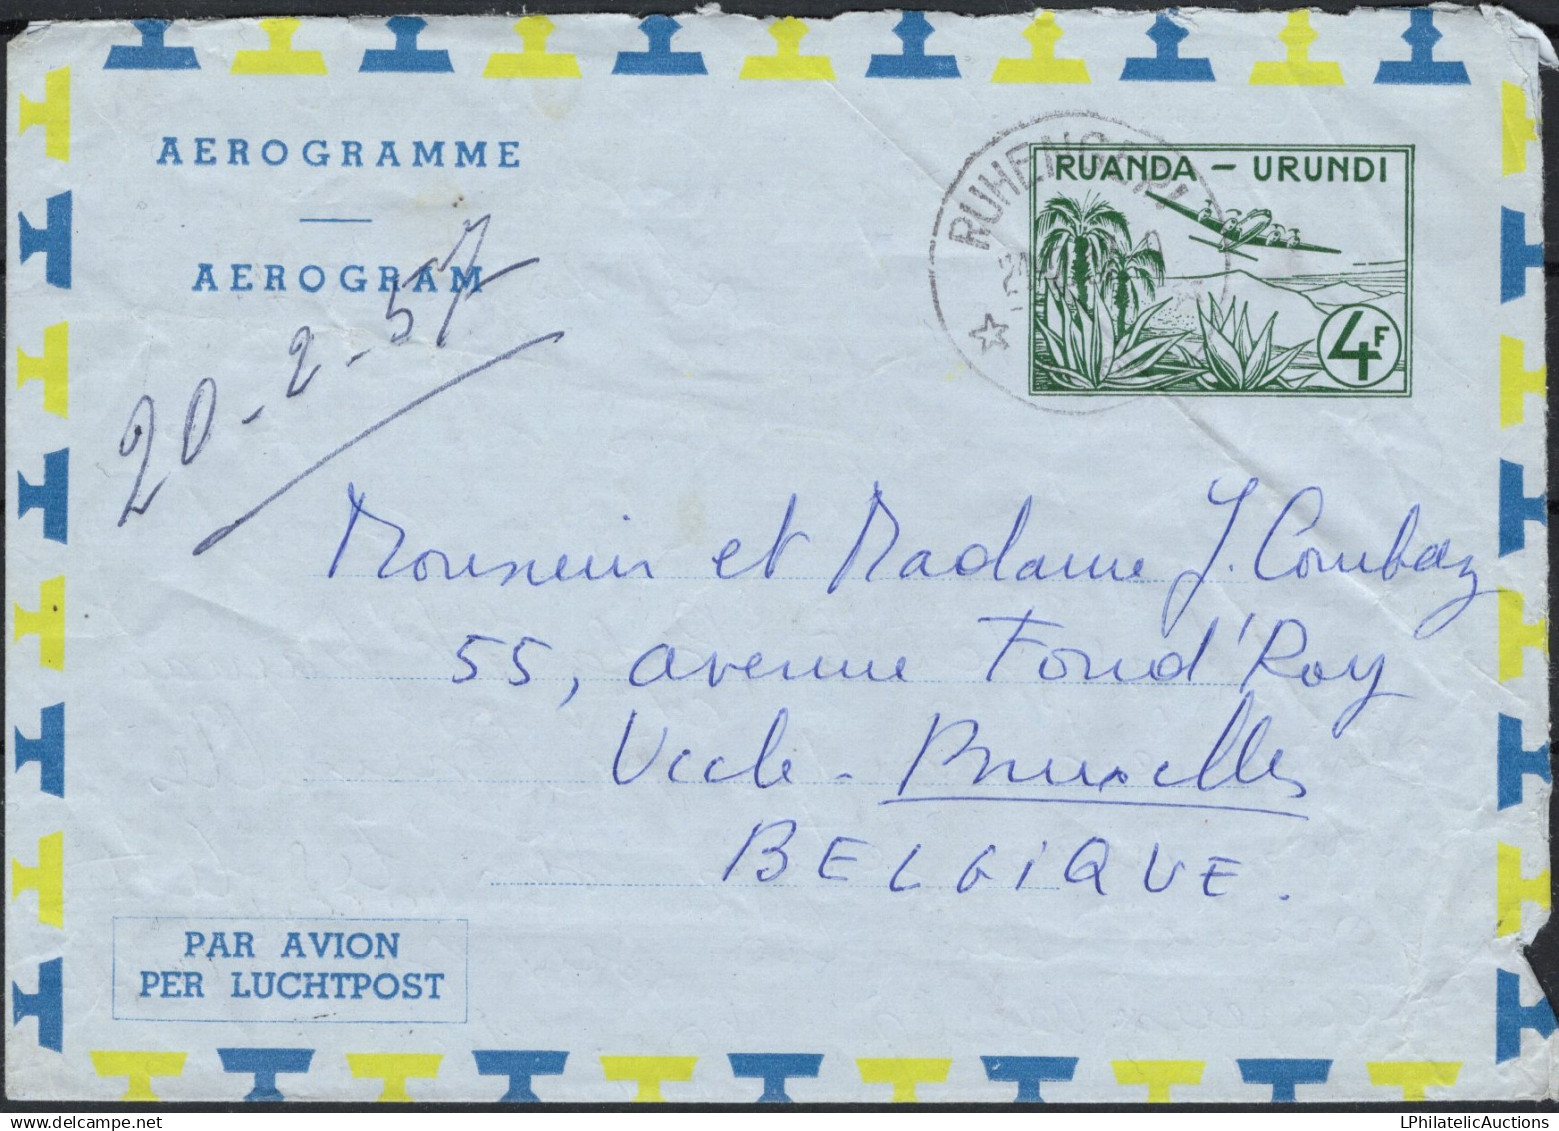 AEROGRAMME
AEROGRAM
20-2-57
RUHENGERI
RUANDA – URUNDI
4F
Monsieur et Madame J. Combaz
55, avenue Fond'Roy
Uccle - Bruxelles
BELGIQUE.
PAR AVION
PER LUCHTPOST
LPhilatelicAuctions